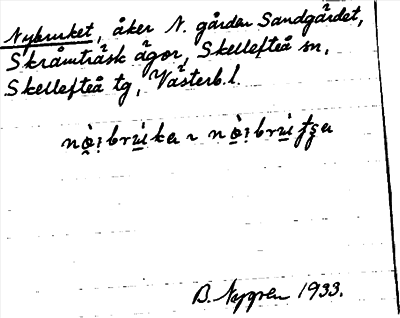 Nybruket, åker N. gården Sandgärdet,
Skråmträsk ägor, Skellefteå sn,
Skellefteå tg, Västerb. l.
B. Nygren 1933.